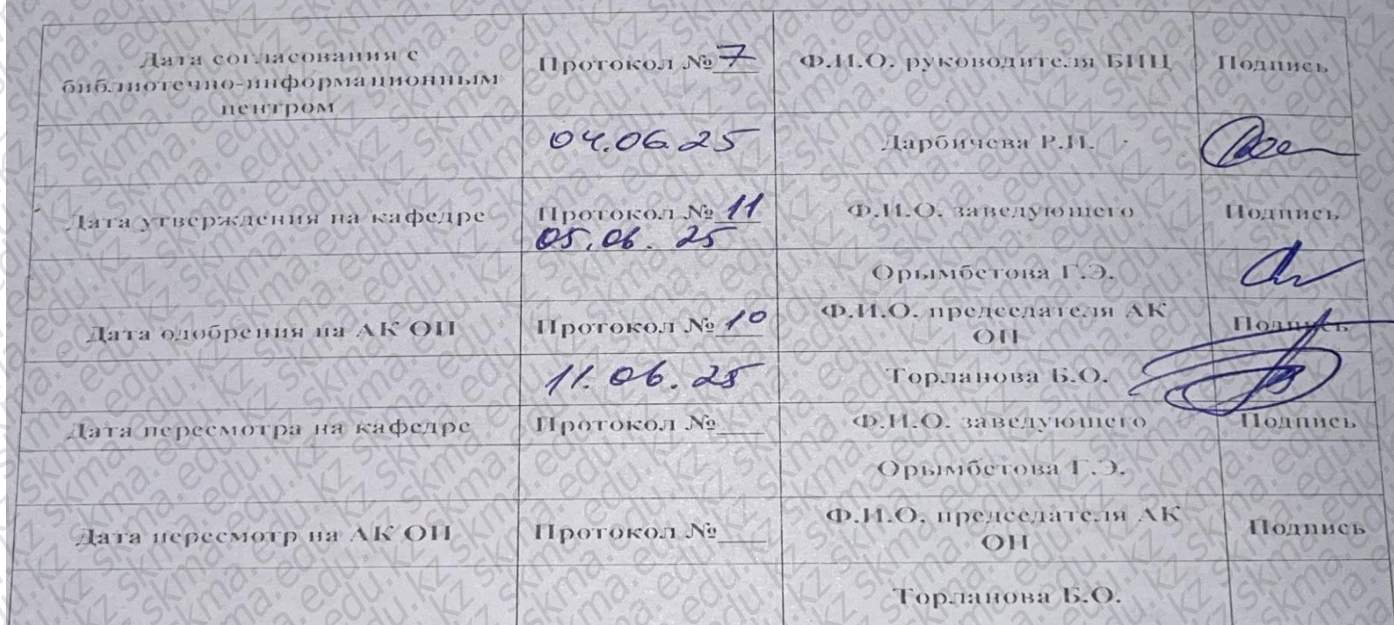 Дата согласования с
библиотечно-информационным
центром
Протокол № 7
Ф.И.О. руководителя БИЦ
Подпись
04.06.25
Дарбичева Р.И.
Дата утверждения на кафедре
Протокол № 11
05.06.25
Ф.И.О. заведующего
Подпись
Орымбетова Г.Э.
Дата одобрения на АК ОП
Протокол № 10
Ф.И.О. председателя АК
ОП
Подпись
11.06.25
Торланова Б.О.
Дата пересмотра на кафедре
Протокол №___
Ф.И.О. заведующего
Подпись
Орымбетова Г.Э.
Дата пересмотр на АК ОП
Протокол №___
Ф.И.О. председателя АК
ОП
Подпись
Торланова Б.О.